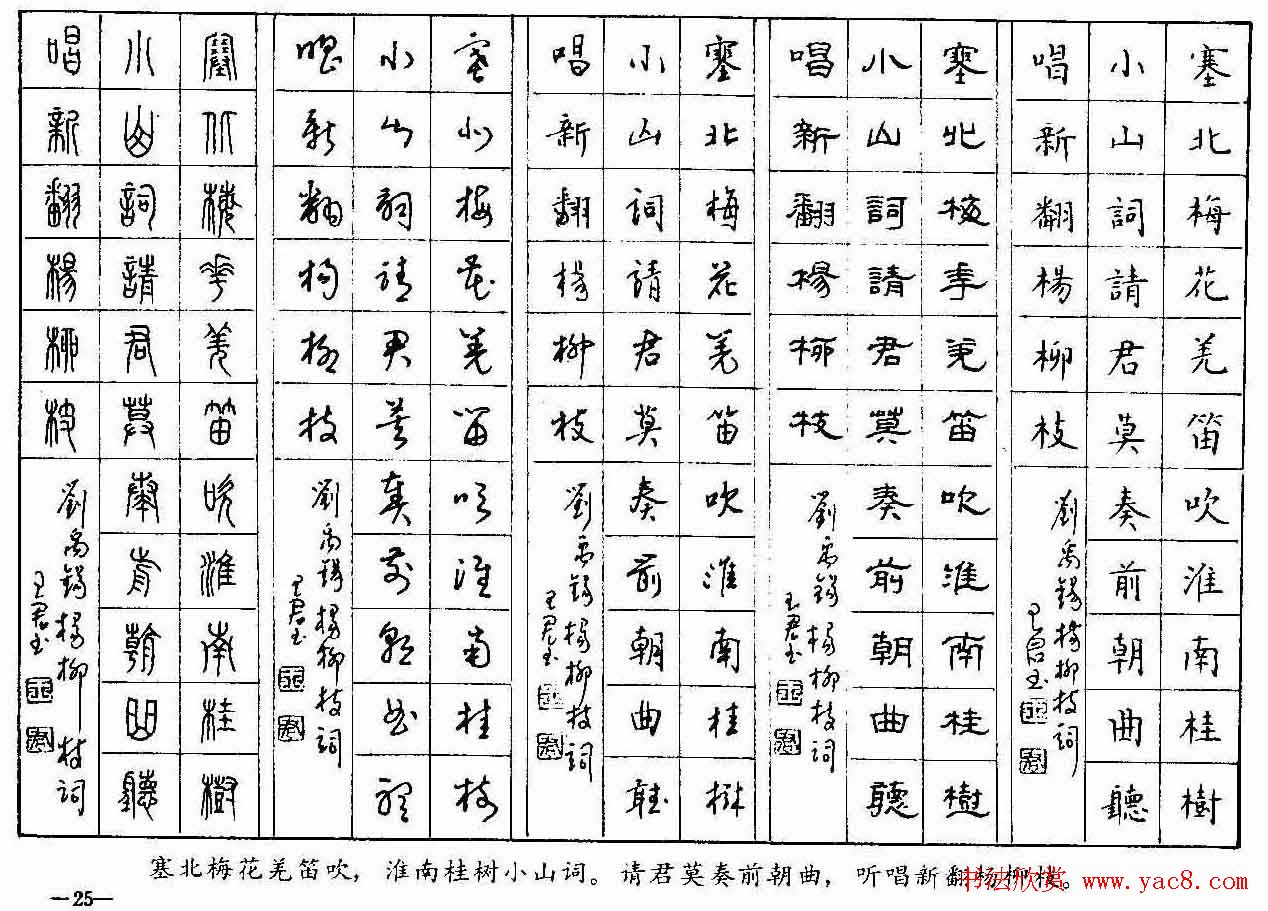 塞北梅花羌笛吹淮南桂樹
小山詞請君莫奏前朝曲聽
唱新翻楊柳枝
劉禹錫楊柳枝詞
塞北梅花羌笛吹淮南桂樹
小山詞請君莫奏前朝曲聽
唱新翻楊柳枝
劉禹錫楊柳枝詞
塞北梅花羌笛吹淮南桂樹
小山詞請君莫奏前朝曲聽
唱新翻楊柳枝
劉禹錫楊柳枝詞
塞北梅花羌笛吹淮南桂樹
小山詞請君莫奏前朝曲聽
唱新翻楊柳枝
劉禹錫楊柳枝詞
塞北梅花羌笛吹淮南桂樹
小山詞請君莫奏前朝曲聽
唱新翻楊柳枝
劉禹錫楊柳枝詞
塞北梅花羌笛吹，淮南桂树小山词。请君莫奏前朝曲，听唱新翻杨柳枝。
书法欣赏 www.yac8.com
—25—